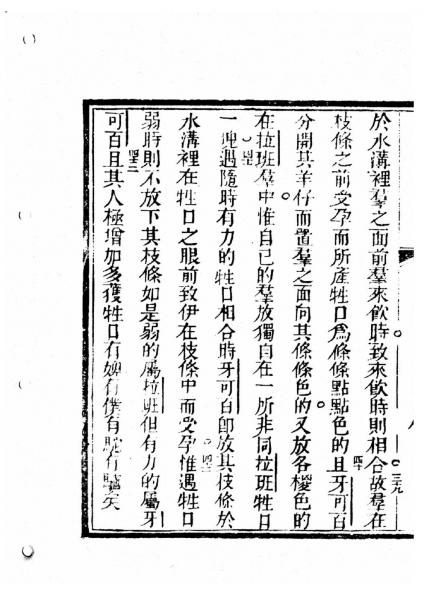 於水溝裡羣之面前羣來飲時致來飲時則相合故羣在
三九
枝條之前受孕而所產牲口爲條條點點色的且牙可百
四十
分開其羊仔而置羣之面向其條條色的又放各樣色的
在拉班羣中惟自己的羣放獨自在一所非同拉班牲口
四一
一凡遇隨時有力的牲口相合時牙可百卽放其枝條於
水溝裡在牲口之眼前致伊在枝條中而受孕惟遇牲口
四二
弱時則不放下其枝條如是弱的屬拉班但有力的屬牙
四三
可百且其人極增加多獲牲口有婢有僕有駝有驢矣